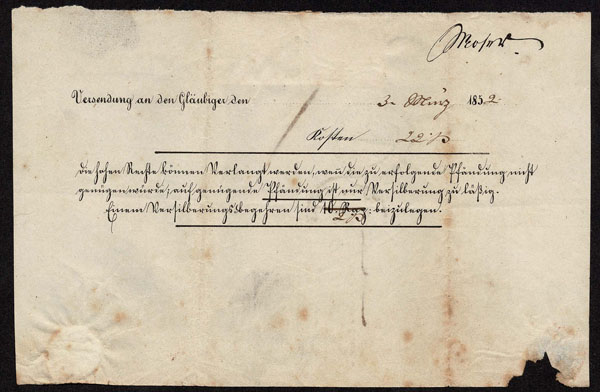 Moser
Versendung an den Gläubiger den 3. März 1852.
Kosten 22 ß
die hohen Rechte können Verlangt werden, wen die zu erfolgende Pfändung nicht
genügen würde; auf genügende Pfändung ist nur Versilberung zuläßig.
Einem Versilberungsbegehren sind 10 Rap: beizulegen.